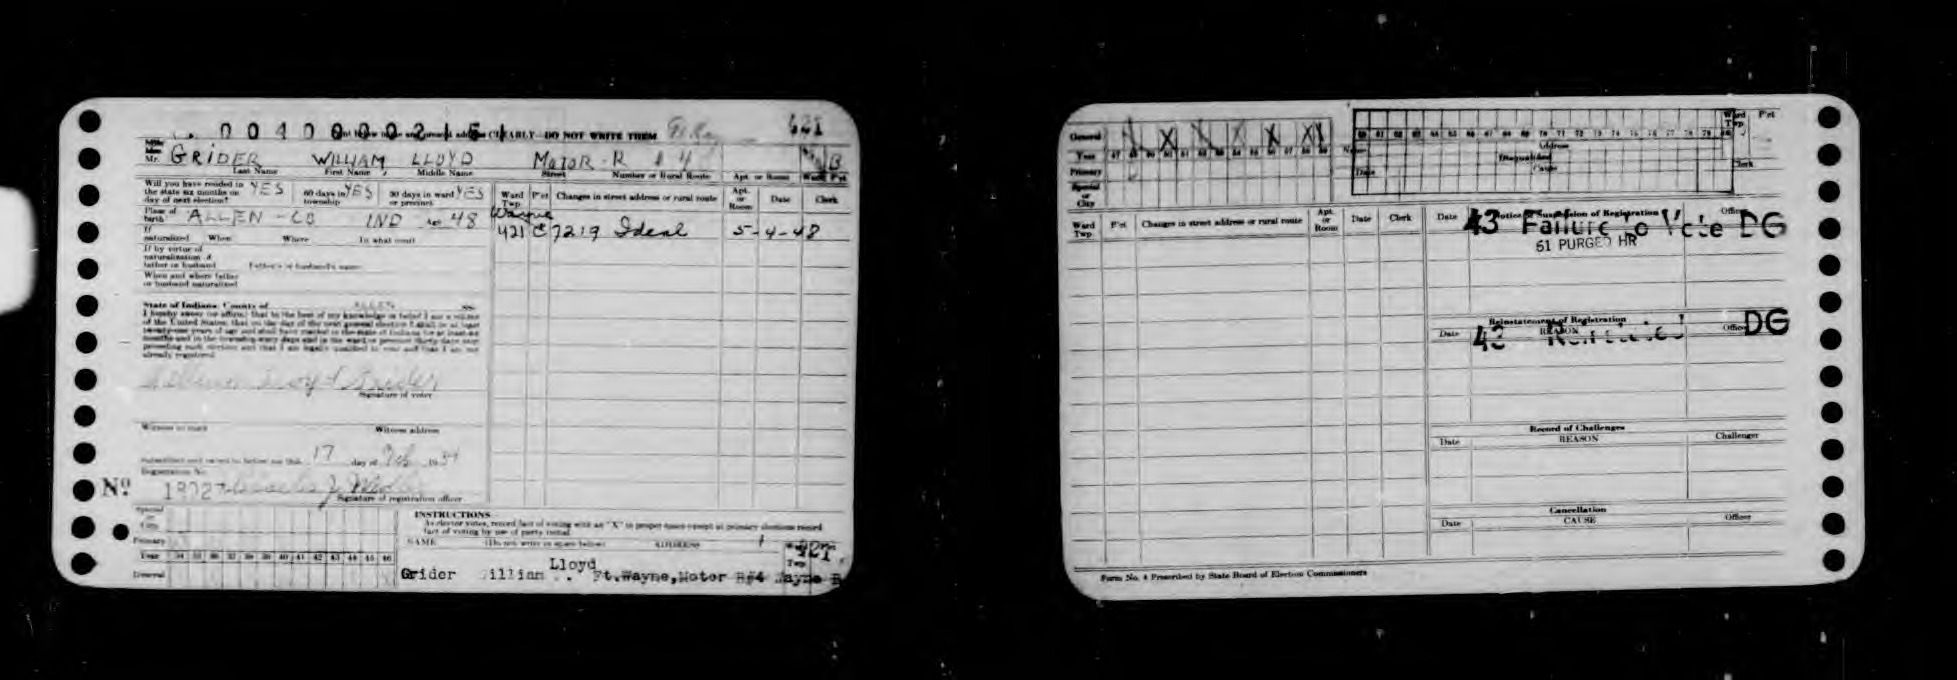 0040000215 CLEARLY—DO NOT WRITE THEM 421
Mr. GRIDER WILLIAM LLOYD MOTOR-R # 4 B
Last Name First Name Middle Name Street Number or Rural Route Apt. or Room Ward Pct.
Will you have resided in the state six months on day of next election? YES 60 days in township YES 30 days in ward or precinct YES
Place of birth ALLEN - CO IND Age 48
If naturalized When Where In what court
If by virtue of naturalization of father or husband Father's or husband's name
When and where father or husband naturalized
Ward Twp. P'ct Changes in street address or rural route Apt. or Room Date Clerk
Wayne
421 C 7219 Ideal 5-4-48
State of Indiana, County of ALLEN ss.
I hereby swear (or affirm) that to the best of my knowledge or belief I am a citizen
of the United States; that on the day of the next general election I shall be at least
twenty-one years of age and shall have resided in the state of Indiana for at least six
months and in the township sixty days and in the ward or precinct thirty days next
preceding such election and that I am legally qualified to vote and that I am not
already registered.
William Lloyd Grider
Signature of voter
Witness to mark Witness address
Subscribed and sworn to before me this 17 day of Feb 1934
Registration No.
No
Signature of registration officer
Special or City
Primary
Year 34 35 36 37 38 39 40 41 42 43 44 45 46
General
INSTRUCTIONS
As elector votes, record fact of voting with an "X" in proper space except at primary elections record
fact of voting by use of party initial.
NAME (Do not write in space below) ADDRESS
Lloyd
Grider William Ft.Wayne,Motor R#4 Wayne B
General X X X X
Year 47 48 49 50 51 52 53 54 55 56 57 58 59
Primary
Special or City
60 61 62 63 64 65 66 67 68 69 70 71 72 73 74 75 76 77 78 79 80 Ward Twp. P'ct
Name Address
Disqualified
Date Cause Clerk
Ward Twp. P'ct Changes in street address or rural route Apt. or Room Date Clerk
Date Notice of Suspension of Registration Officer
43 Failure to Vote DG
61 PURGED HR
Reinstatement of Registration
Date REASON Officer
43 DG
Record of Challenges
Date REASON Challenger
Cancellation
Date CAUSE Officer
Form No. 4 Prescribed by State Board of Election Commissioners